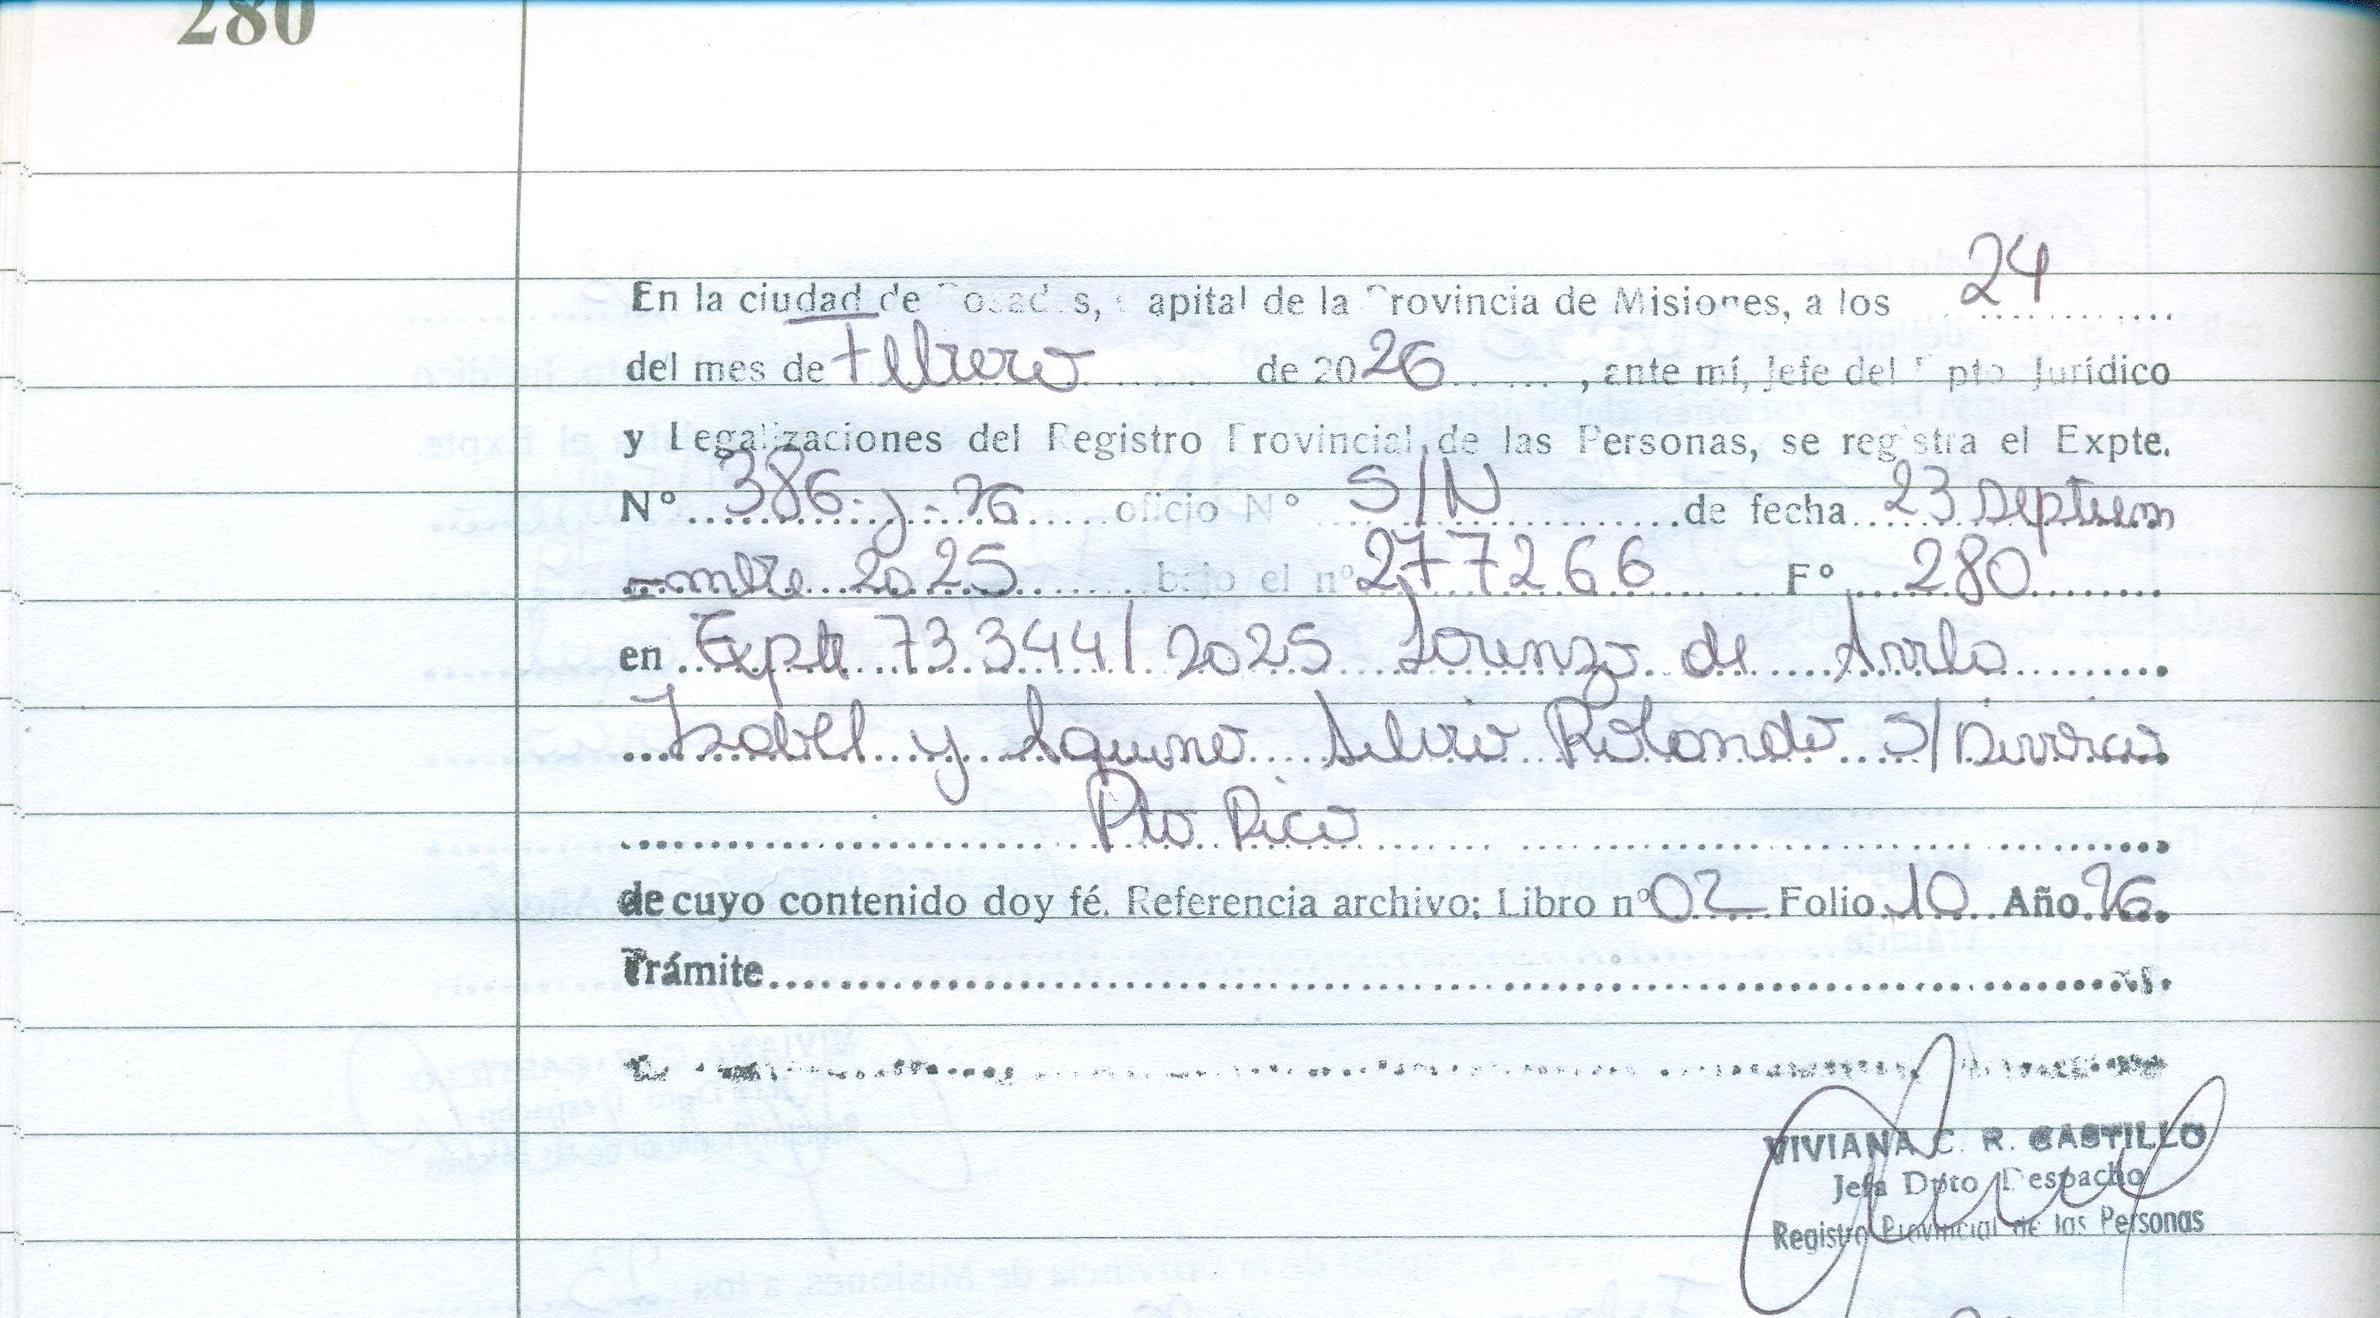 280
En la ciudad de Posadas, Capital de la Provincia de Misiones, a los 24
del mes de Febrero de 2026, ante mí, Jefe del Dpto. Jurídico
y Legalizaciones del Registro Provincial de las Personas, se registra el Expte.
Nº 386-J-26 oficio Nº S/N de fecha 23 Septiem
-mbre 2025 bajo el nº 277266 Fº 280
en Expte 73344/2025 Lorenzo de
Isabel y Aquino Silvio Rolando S/Divorcio
Pto Rico
de cuyo contenido doy fé. Referencia archivo: Libro nº 02 Folio 10 Año 26
Trámite
VIVIANA C. R. CASTILLO
Jefa Dpto Despacho
Registro Provincial de las Personas